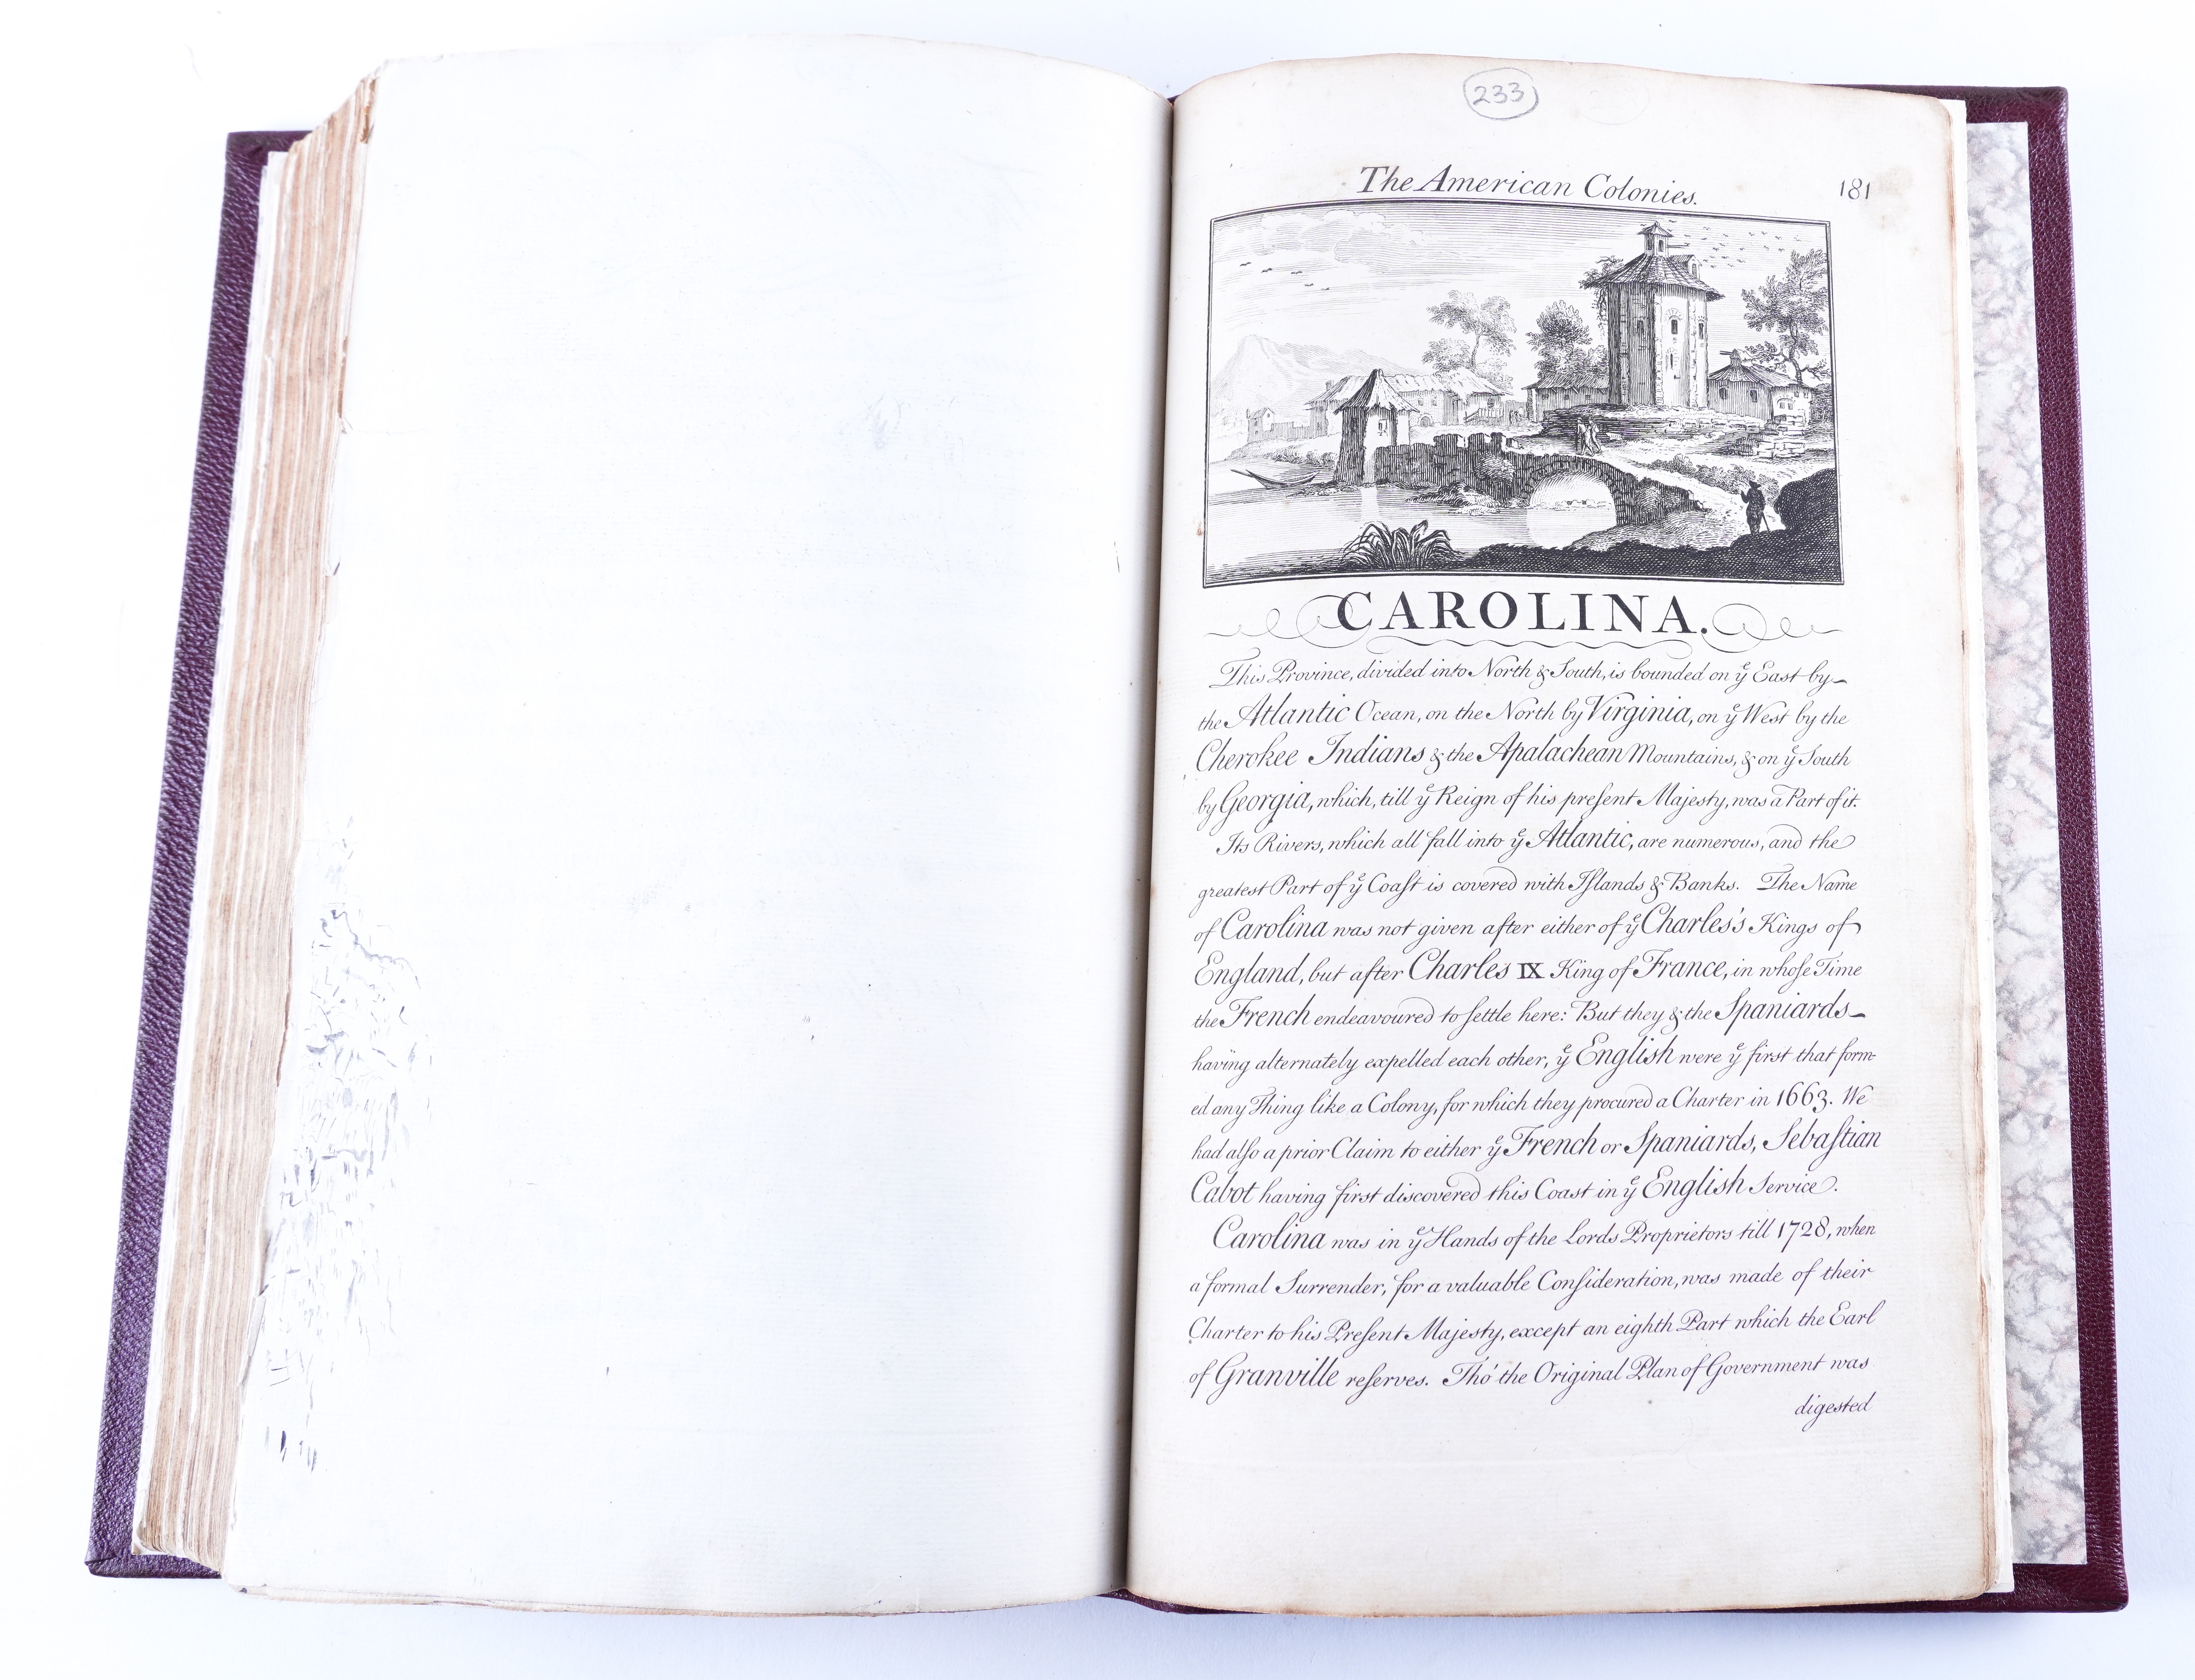 233
The American Colonies.
181
CAROLINA.
This Province, divided into North & South, is bounded on yͤ East by
the Atlantic Ocean, on the North by Virginia, on yͤ West by the
Cherokee Indians & the Apalachean Mountains, & on yͤ South
by Georgia, which, till yͤ Reign of his preſent Majesty, was a Part of it.
Its Rivers, which all fall into yͤ Atlantic, are numerous, and the
greatest Part of yͤ Coaſt is covered with Iſlands & Banks. The Name
of Carolina was not given after either of yͤ Charles's Kings of
England, but after Charles IX King of France, in whoſe Time
the French endeavoured to ſettle here: But they & the Spaniards
having alternately expelled each other, yͤ English were yͤ first that form-
ed any Thing like a Colony, for which they procured a Charter in 1663. We
had alſo a prior Claim to either yͤ French or Spaniards, Sebaſtian
Cabot having first discovered this Coast in yͤ English Service.
Carolina was in yͤ Hands of the Lords Proprietors till 1728, when
a formal Surrender, for a valuable Conſideration, was made of their
Charter to his Preſent Majesty, except an eighth Part which the Earl
of Granville reſerves. Tho' the Original Plan of Government was
digested